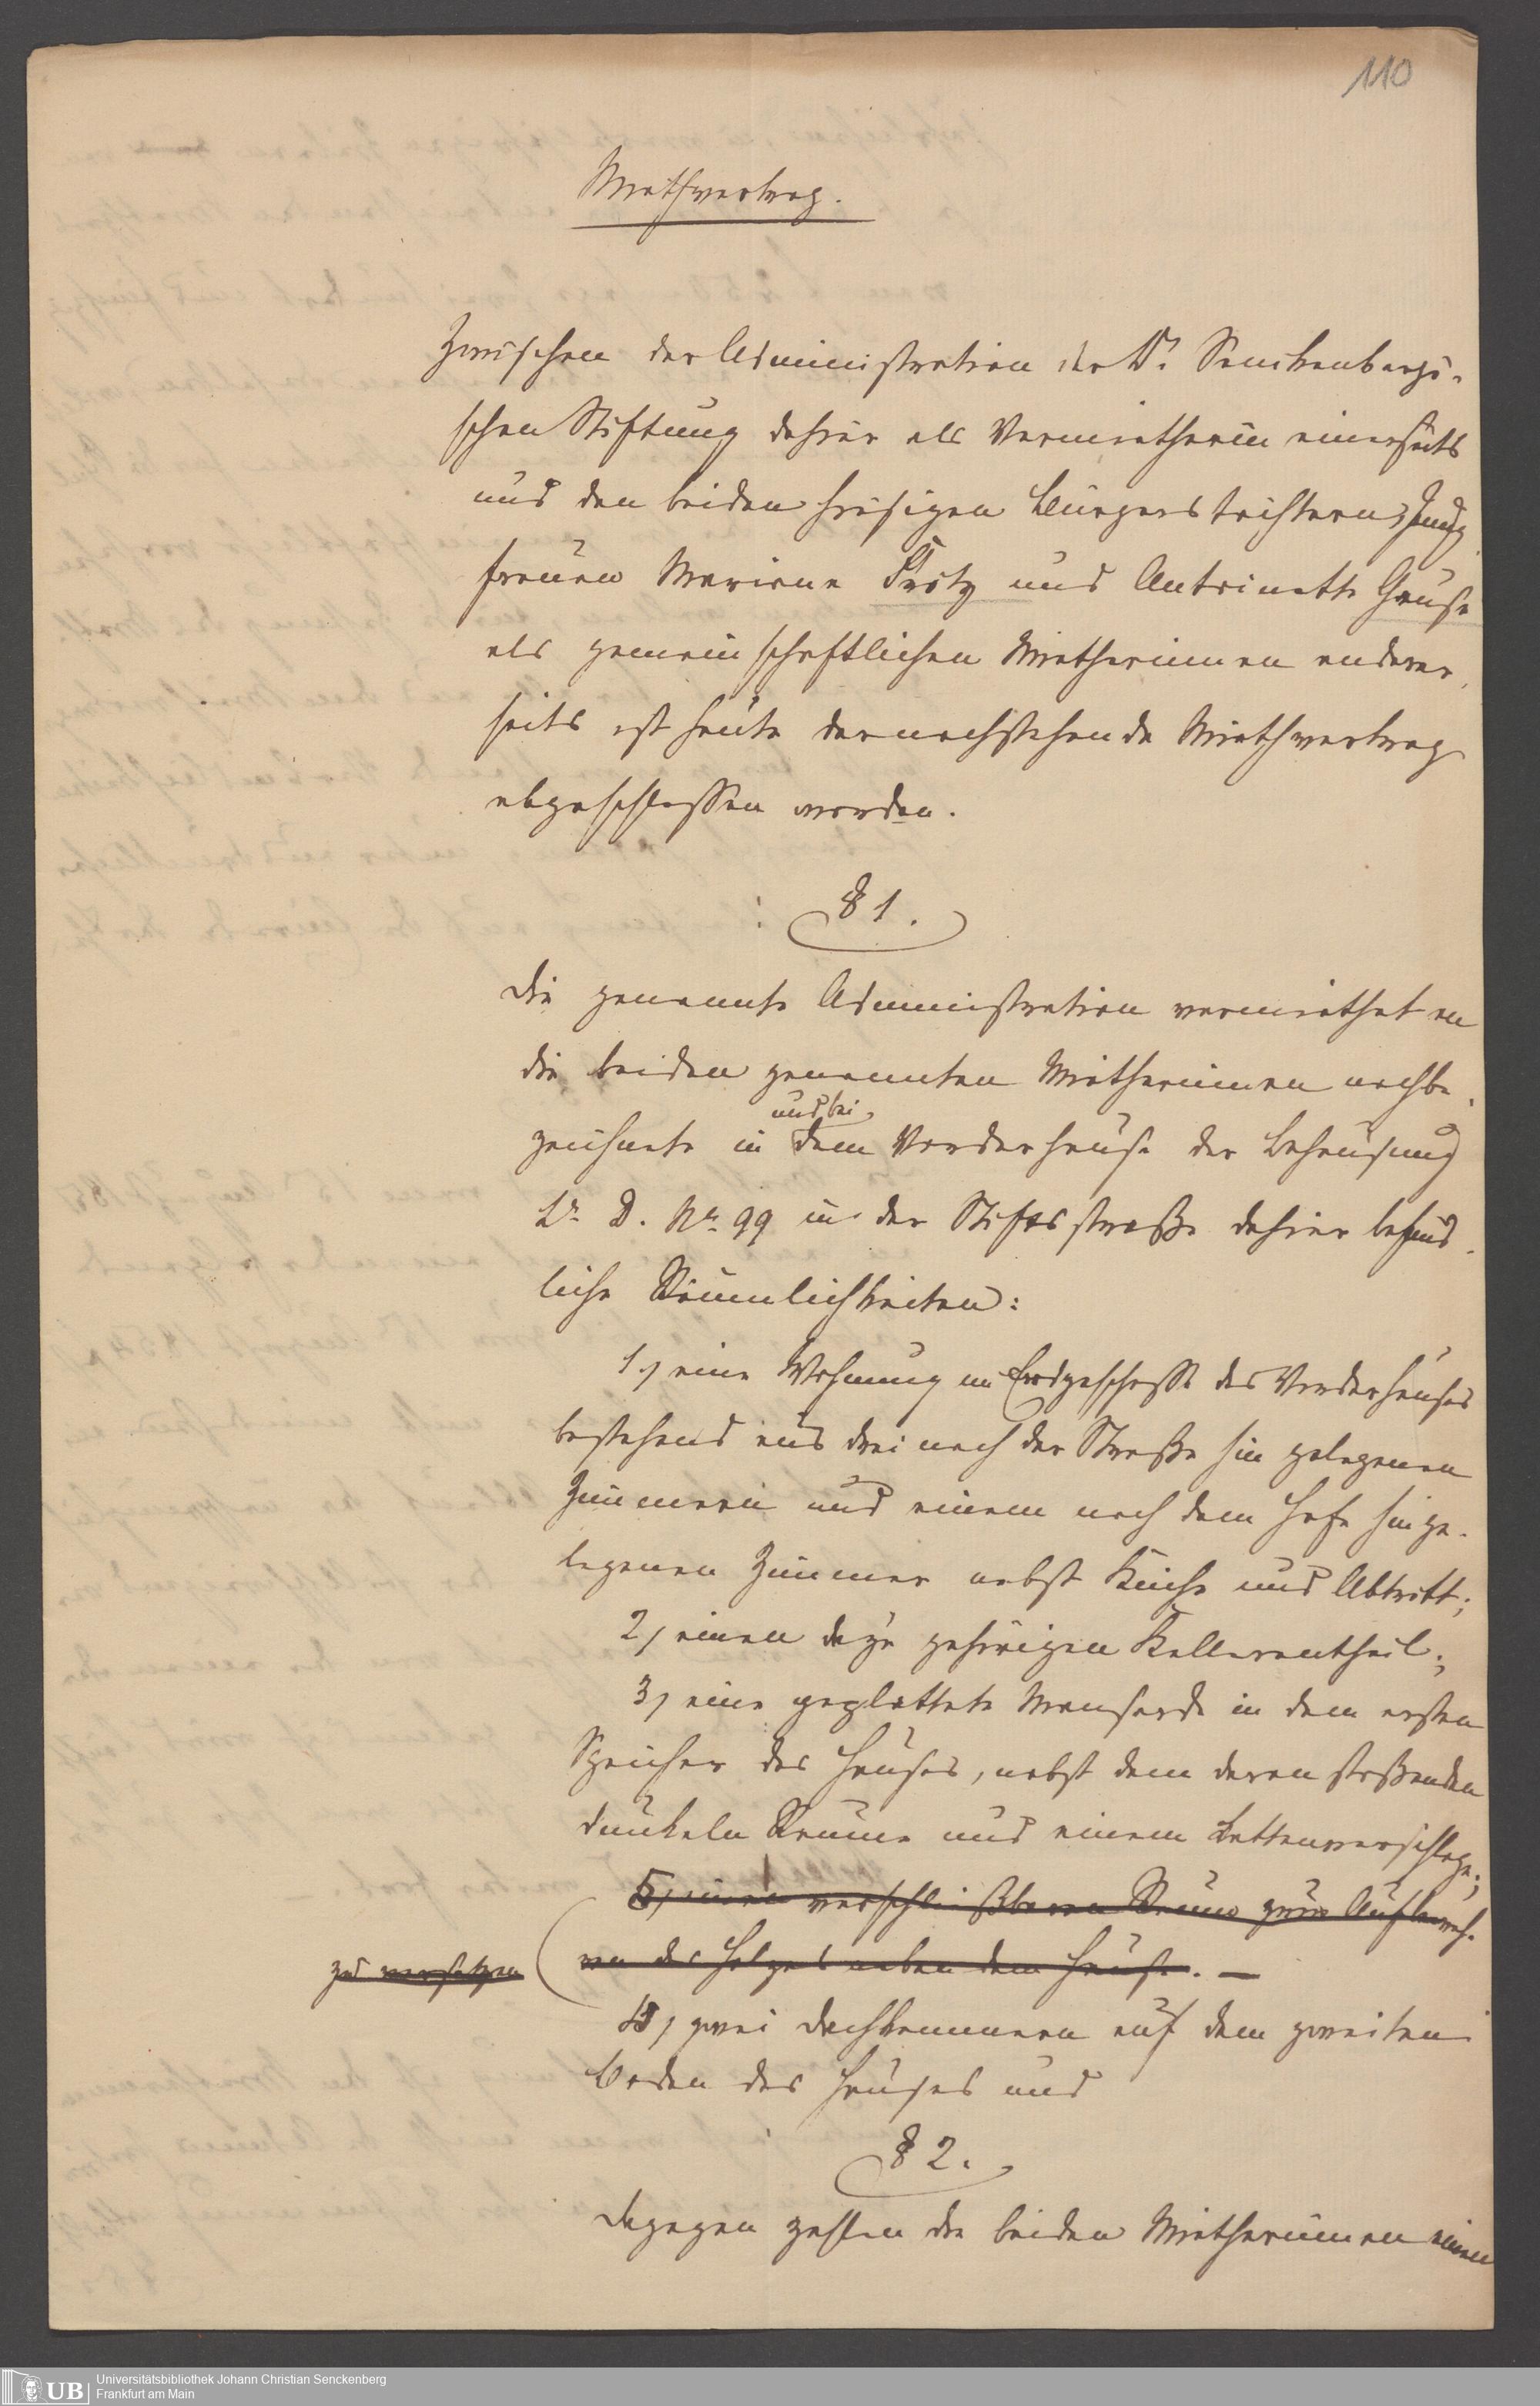 110
Miethvertrag.
Zwischen der Administration der Dr. Senckenbergi-
schen Stiftung dahier als Vermietherin einerseits
und den beiden hiesigen Bürgerstöchtern, Jung
frauen Mariane Trotz und Antoinette Hause
als gemeinschaftlichen Mietherinnen anderer
seits ist heute der nachstehende Miethvertrag
abgeschlossen worden.
§ 1.
Die genannte Administration vermiethet an
die beiden genannten Mietherinnen nachbe
und bei
zeichnete in dem Vorderhause der Behausung
Lr. D. Nr. 99 in der Stiftsstraße dahier befind
liche Räumlichkeiten:
1, eine Wohnung im Erdgeschosse des Vorderhauses
bestehend aus drei nach der Straße hin gelegenen
Zimmern und einem nach dem Hofe hin ge-
legenen Zimmer nebst Küche und Abtritt;
2, einen dazu gehörigen Kellerantheil;
3, eine geplattete Mansarde in dem ersten
Speicher des Hauses, nebst dem daran stoßenden
dunkeln Raume und einem Lattenverschlage;
5, einen verschließbaren Raum zum Aufbewah-
ren des Holzes neben dem Hause. —
zu versetzen
4, zwei Dachkammern auf dem zweiten
Boden des Hauses und
§ 2.
Dagegen zahlen die beiden Mietherinnen einen
Universitätsbibliothek Johann Christian Senckenberg
Frankfurt am Main
UB